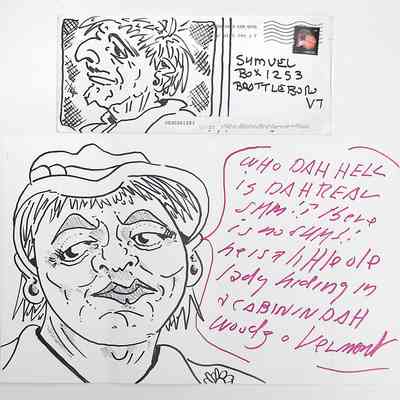 SAMUEL
BOX 1253
BRATTLEBORO
VT
WHO DAH HELL
IS DAH REAL
SAM!? There
is no SAM!!
he is A little ole
lady hiding in
A CABIN IN DAH
woods o Vermont